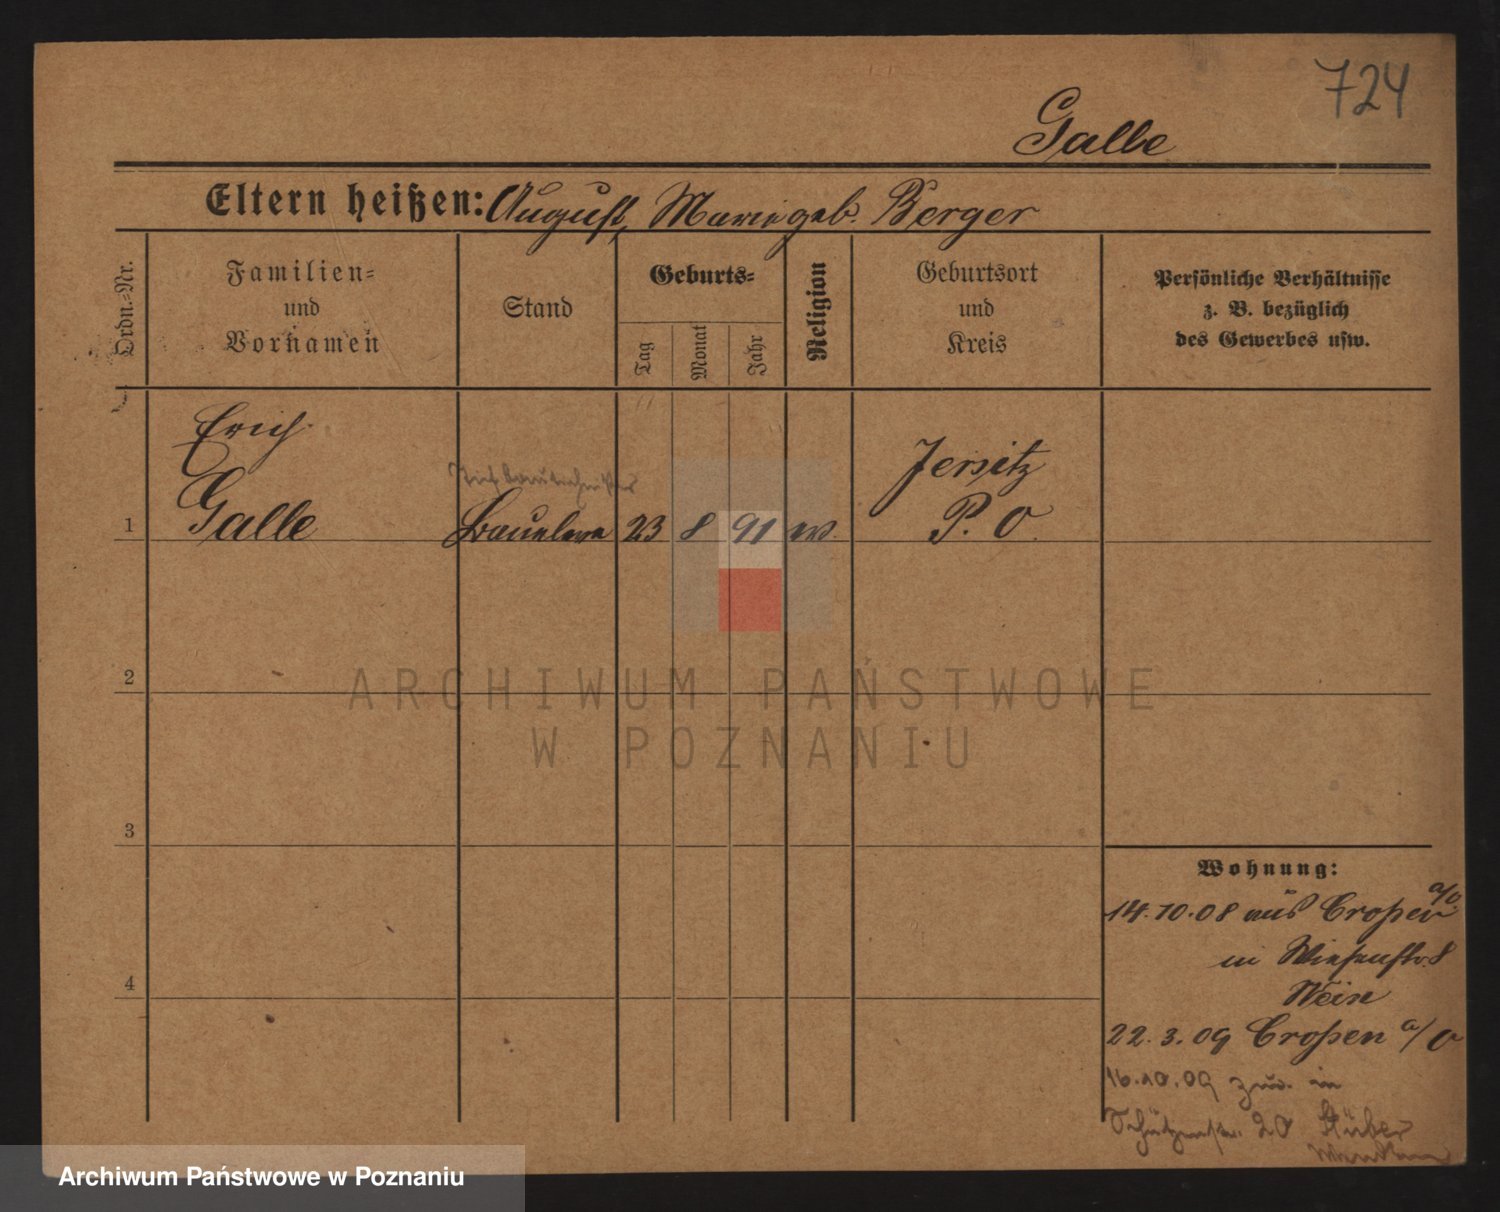 724
Galle
Eltern heißen: August, Marie geb. Berger
Ordn.-Nr.
Familien-
und
Vornamen
Stand
Geburts-
Tag
Monat
Jahr
Religion
Geburtsort
und
Kreis
Persönliche Verhältnisse
z. B. bezüglich
des Gewerbes usw.
Erich
Jersitz
Tiefbautechniker
1 Galle Baueleve 23 8 91 P. O.
2
ARCHIWUM PAŃSTWOWE
W POZNANIU
3
Wohnung:
14.10.08 aus Croßen a/O.
in Wiesenstr. 8
Weise
4
22.3.09 Croßen a/O
16.10.09 zur. in
Schützenstr. 20 Stüber
Archiwum Państwowe w Poznaniu